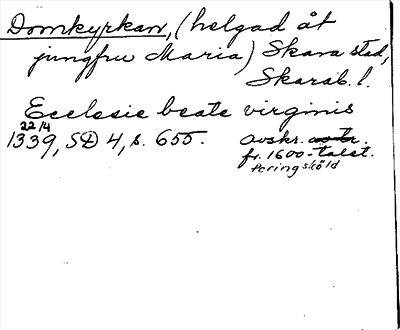 Domkyrkan, (helgad åt
jungfru Maria) Skara stad,
Skarab. l.
Ecclesie beate virginis
22/4
1339, SD 4, s. 655. avskr.
fr. 1600-talet.
Peringsköld